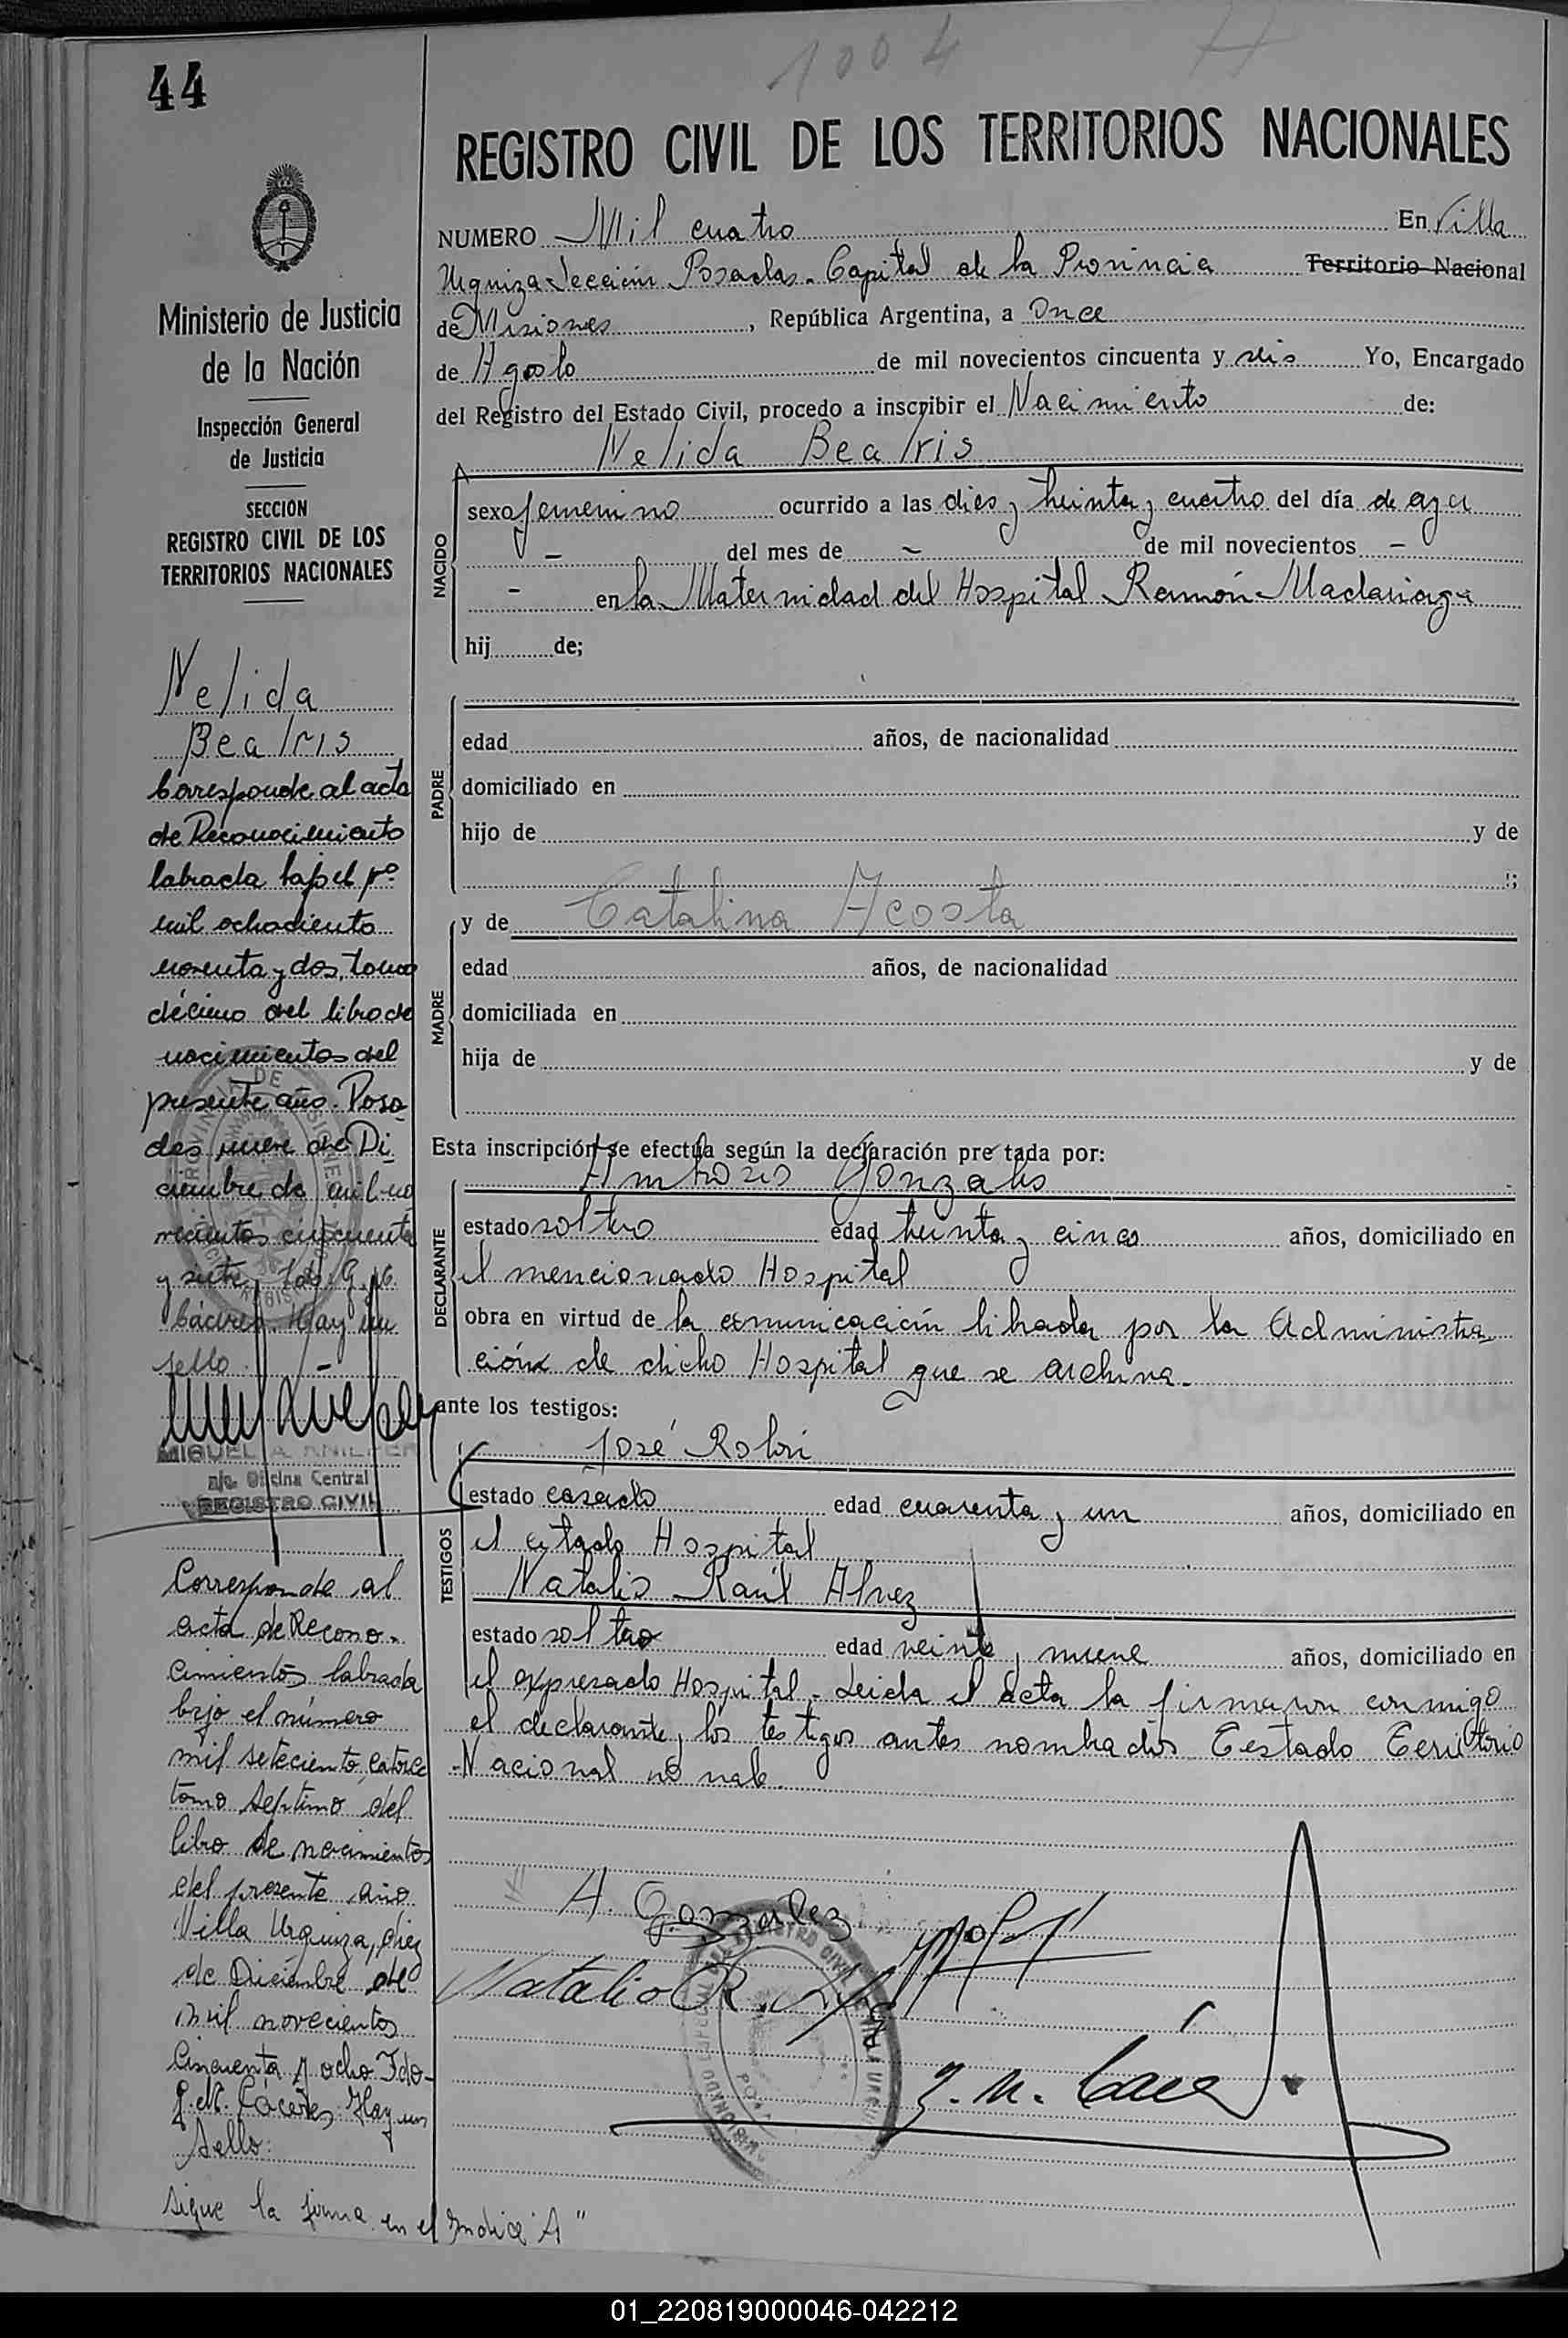 1004
44
REGISTRO CIVIL DE LOS TERRITORIOS NACIONALES
NUMERO Mil cuatro En Villa
Urquiza Sección Posadas. Capital de la Provincia Territorio Nacional
de Misiones, República Argentina, a Once
de Agosto de mil novecientos cincuenta y seis Yo, Encargado
del Registro del Estado Civil, procedo a inscribir el Nacimiento de:
Nelida Beatris
NACIDO
sexo femenino ocurrido a las dies y treinta y cuatro del día de ayer
- del mes de - de mil novecientos -
- en la Maternidad del Hospital Ramón Madariaga
hij de;
PADRE
edad años, de nacionalidad
domiciliado en
hijo de y de
;
MADRE
y de Catalina Acosta
edad años, de nacionalidad
domiciliada en
hija de y de
Esta inscripción se efectúa según la declaración pre tada por:
DECLARANTE
Ambrosio Gonzales
estado soltero edad treinta y cinco años, domiciliado en
el mencionado Hospital
obra en virtud de la comunicación librada por la Administra
ción de dicho Hospital que se archiva.
ante los testigos:
TESTIGOS
José Rolón
estado casado edad cuarenta y un años, domiciliado en
el citado Hospital
Natalio Raúl Alvez
estado soltero edad veinte y nueve años, domiciliado en
el expresado Hospital. Leida el acta la firmaron conmigo
el declarante y los testigos antes nombrados Testado Territorio
Nacional no vale.
A. Gonzalez
Natalio R.
Ministerio de Justicia
de la Nación
Inspección General
de Justicia
SECCION
REGISTRO CIVIL DE LOS
TERRITORIOS NACIONALES
Nelida
Beatris
Corresponde al acta
de Reconocimiento
labrada bajo el nº
mil ochociento
noventa y dos, tomo
décimo del libro de
nacimientos del
presente año. Posa
das nueve de Di
ciembre de mil no
vecientos cincuenta
y siete, Fdo: G. N.
Cáceres. Hay un
sello. -
MIGUEL A.
a/c. Oficina Central
REGISTRO CIVIL
Corresponde al
acta de Recono.
cimientos labrada
bajo el número
mil seteciento catorce
tomo septimo del
libro de nacimientos
del presente año
Villa Urquiza, diez
de Diciembre de
mil novecientos
Cincuenta y ocho Fdo-
G. N. Cáceres. Hay un
Sello:
Sigue la firma en el Indice "A"
01_220819000046-042212